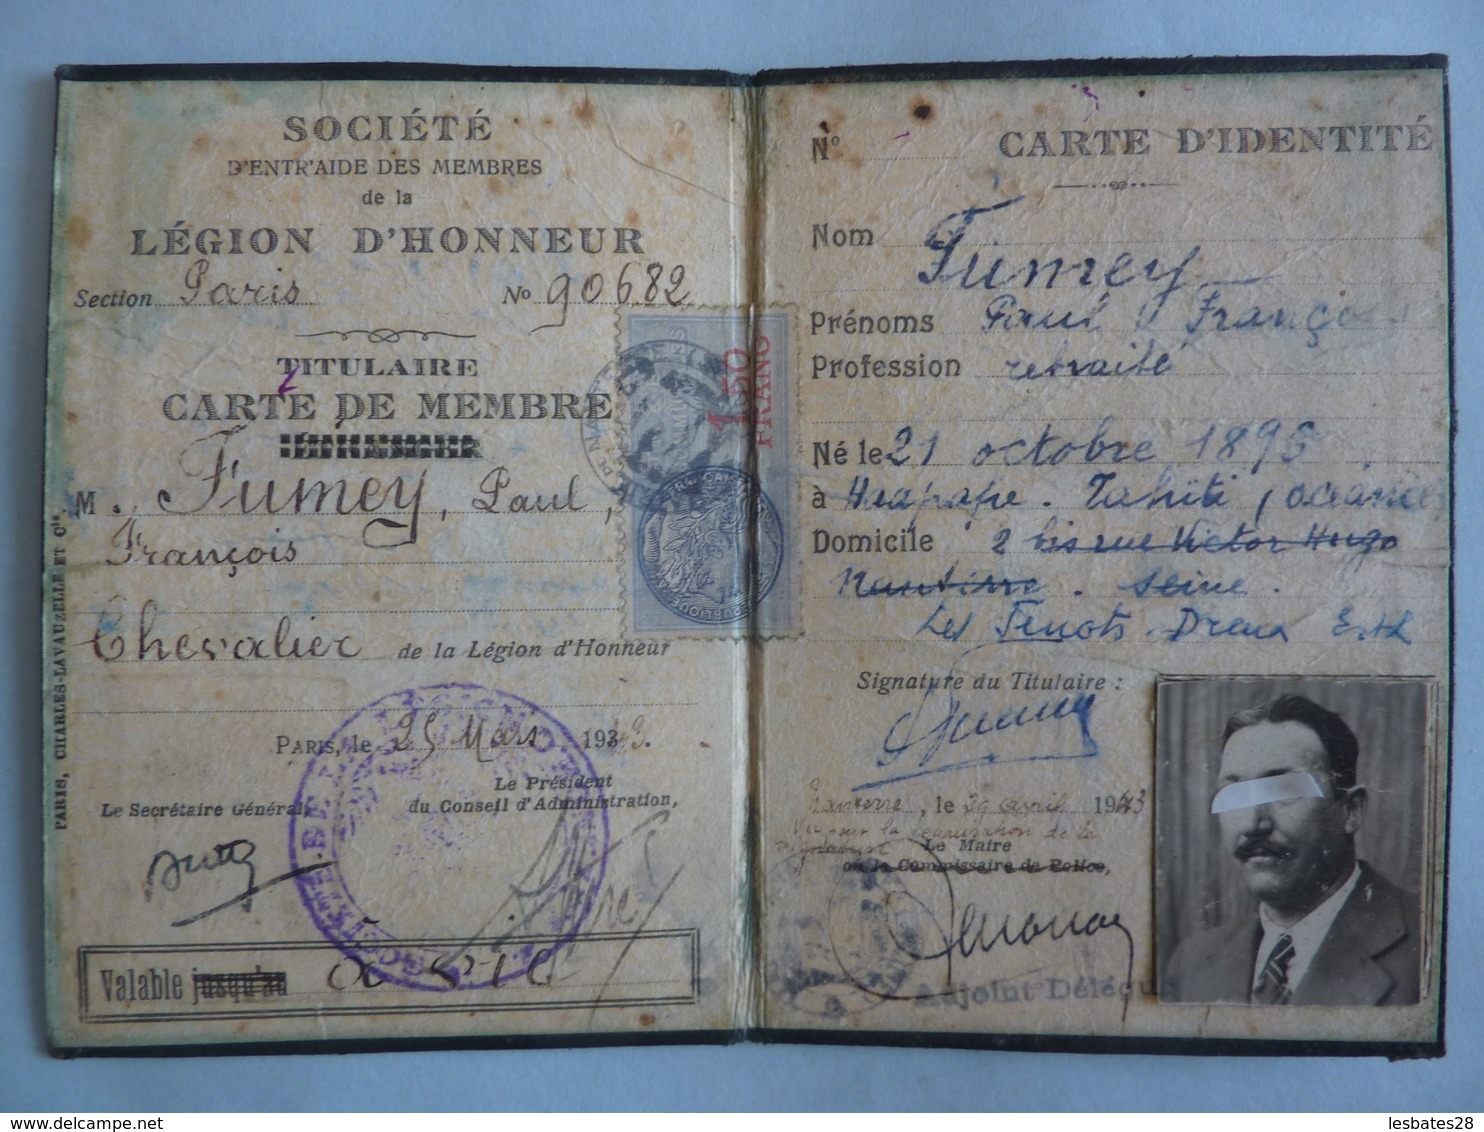 SOCIÉTÉ
D'ENTR'AIDE DES MEMBRES
de la
LÉGION D'HONNEUR
Section Paris No 90682
TITULAIRE
CARTE DE MEMBRE
M. Fumey, Paul,
François
Chevalier de la Légion d'Honneur
PARIS, le 25 Mars 1943.
Le Secrétaire Général,
Le Président
du Conseil d'Administration,
Valable jusqu'au
PARIS, CHARLES-LAVAUZELLE ET Cie
1.50
FRANC
No CARTE D'IDENTITÉ
Nom Fumey
Prénoms Paul François
Profession retraité
Né le 21 octobre 1896
à Haapape. Tahiti (océanie
Domicile 2 bis rue Victor Hugo
Nanterre. Seine.
Les Fenots Dreux E.&L
Signature du Titulaire :
Nanterre, le 29 avril 1943
Vu pour la légalisation de la
signature Le Maire
ou le Commissaire de Police,
Adjoint Délégué
lesbates28